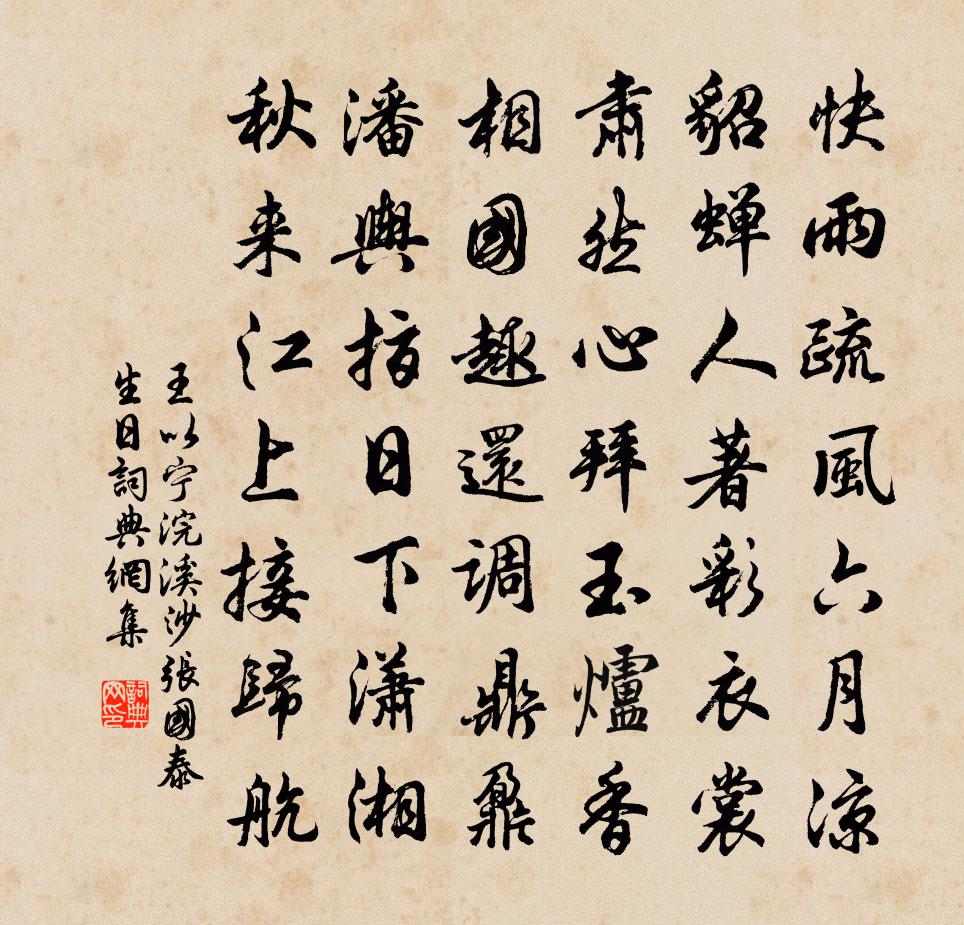 快雨疏風六月涼
貂蝉人著彩衣裳
肅然心拜玉爐香
相國趣還調鼎鼐
潘輿指日下瀟湘
秋来江上接歸航
王以宁浣溪沙張國泰
生日詞典網集
詞典网印